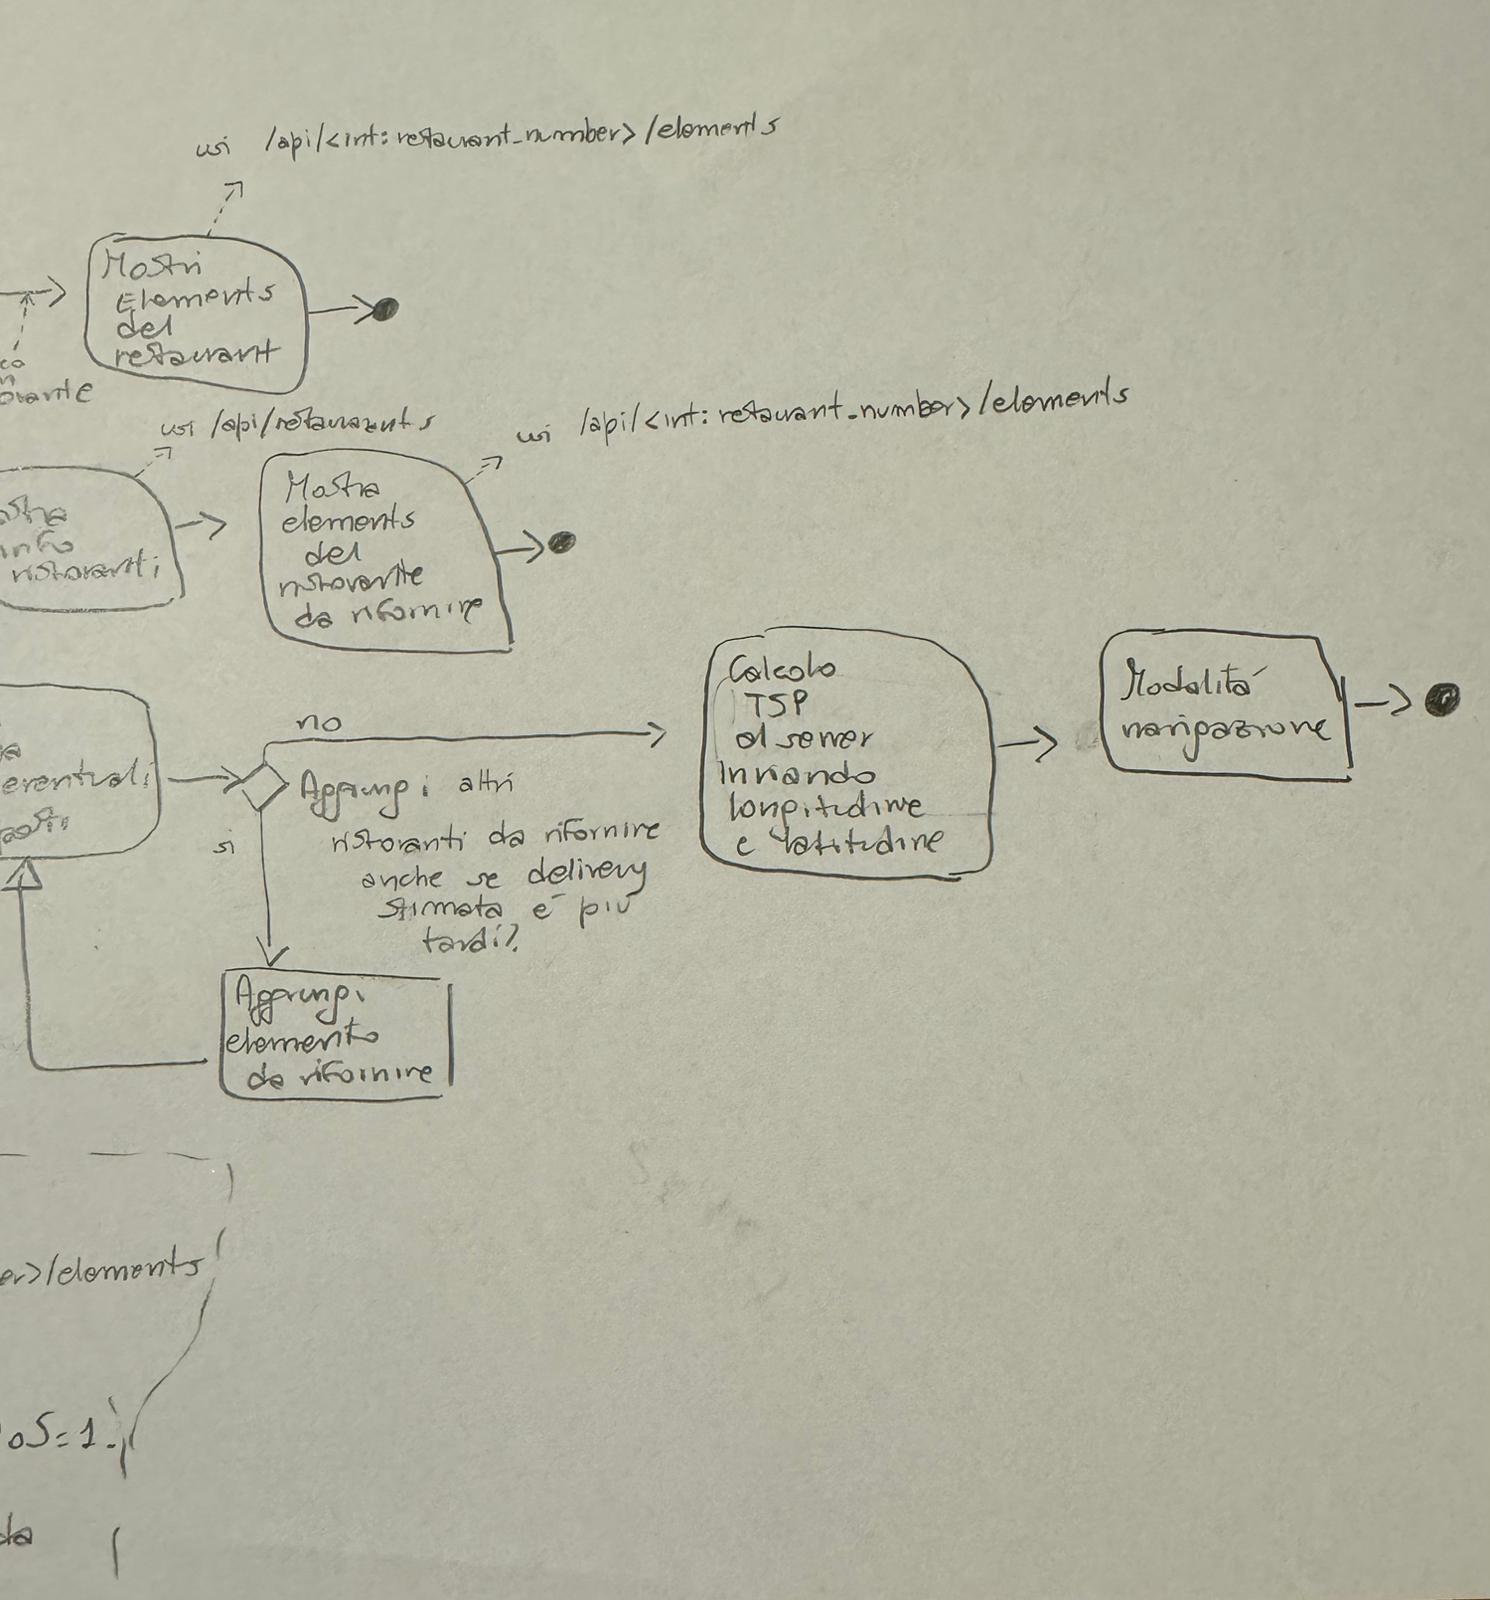 usi /api/<int:restaurant_number>/elements
Mostri
Elements
del
restaurant
orante
usi /api/restaurants
usi /api/<int:restaurant_number>/elements
info
ristoranti
Mostra
elements
del
ristorante
da rifornire
no
Aggiungi altri
ristoranti da rifornire
anche se delivery
stimata é più
tardi?
si
eventuali
Calcolo
TSP
al server
Inviando
longitudine
e latitudine
Modalitá
navigazione
Aggiungi
elemento
da rifornire
er>/elements
oS=1.
da